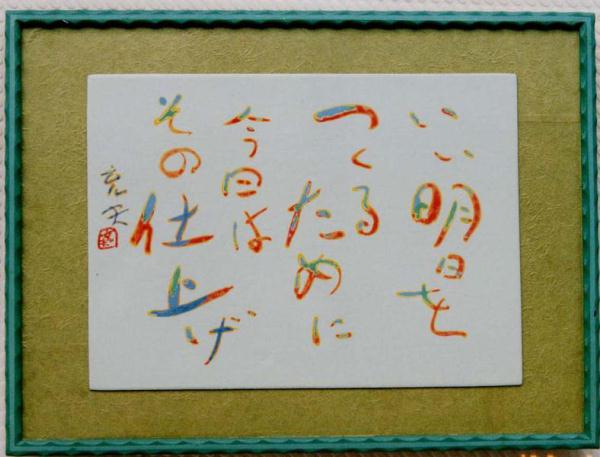 いい明日を
つくる
ために
今日は
その仕上げ